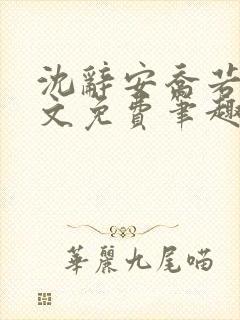 沈辭安喬若
文免費筆趣
華麗九尾喵